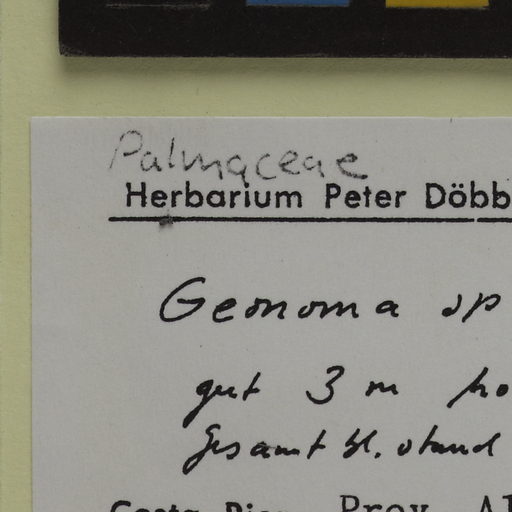 Palmaceae
Herbarium Peter Döbb
Geonoma sp
gut 3 m ho
Gesamt bl. stand
Costa Rica Prov. Al